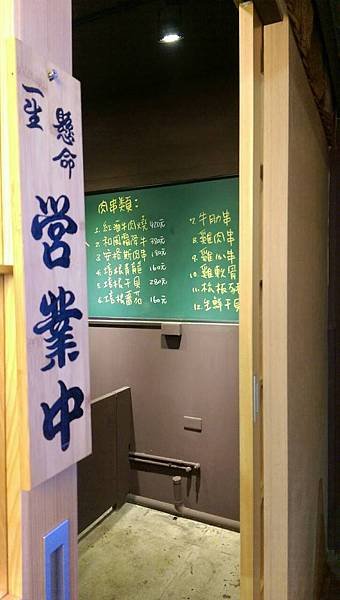 一生
懸命
營業中
肉串類：
1. 紅酒牛肉燒 420元
2. 和風霜降牛 380元
3. 安格斯肉串 180元
4. 培根青龍 160元
5. 培根干貝 280元
6. 培根番茄 160元
7. 牛肋串
8. 雞肉串
9. 雞心串
10. 雞軟骨
11. 松板豬
12. 生鮮干貝